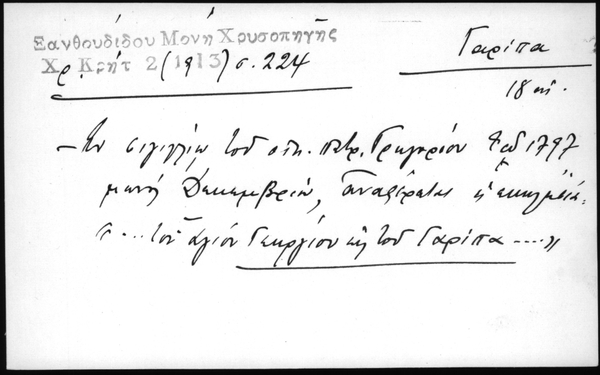 Ξανθουδίδου Μονή Χρυσοπηγῆς
Χρ. Κρήτ 2 (1913) σ. 224
Γαρίπα
18 αἰ.
– Ἐν σιγιλλίῳ τοῦ οἰκ. πατρ. Γρηγορίου Ε τοῦ 1797
μηνὶ Δεκεμβρίῳ, ἀναφέρεται ἡ ἐκκλησία
"... τοῦ ἁγίου Γεωργίου εἰς τοῦ Γαρίπα ...."